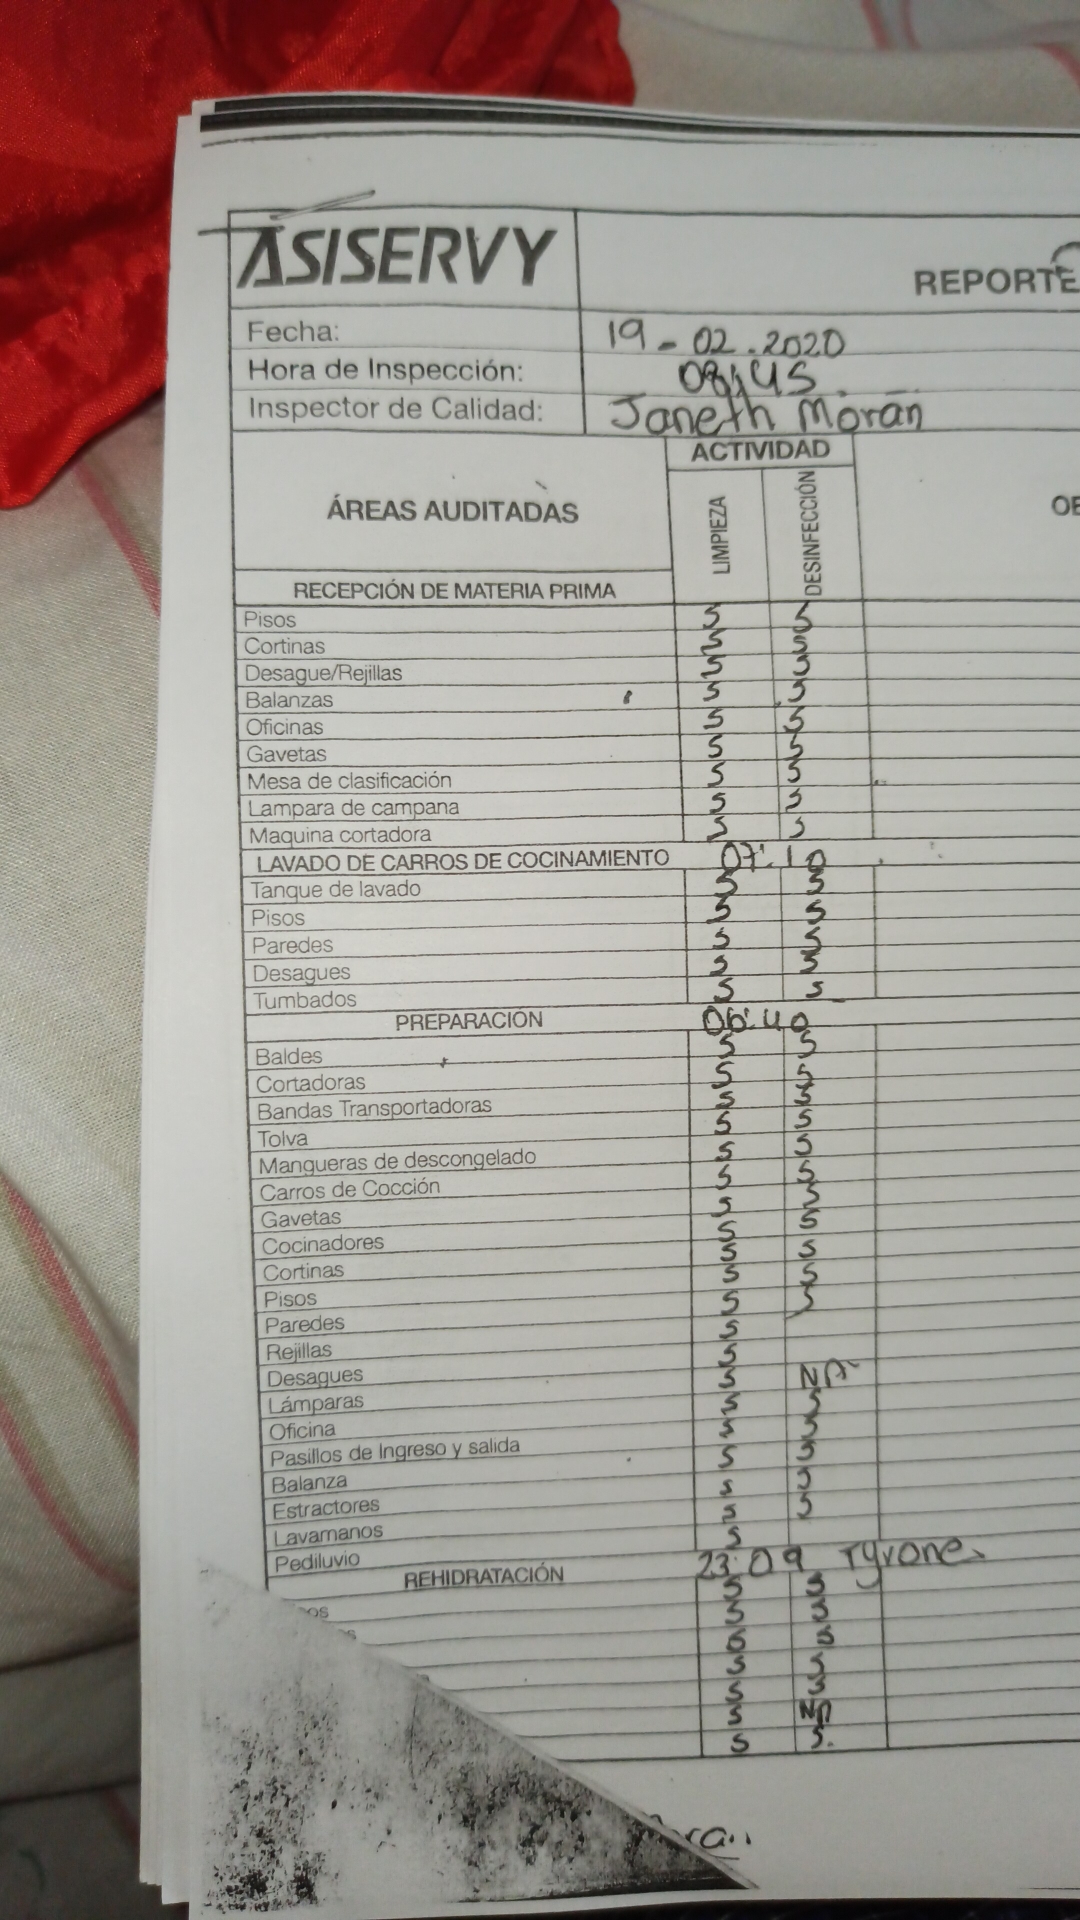 ASISERVY
REPORTE
Fecha: 19-02.2020
Hora de Inspección: 08:45
Inspector de Calidad: Janeth Morán
ÁREAS AUDITADAS
ACTIVIDAD
LIMPIEZA
DESINFECCIÓN
RECEPCIÓN DE MATERIA PRIMA
Pisos S S
Cortinas S S
Desague/Rejillas S S
Balanzas S S
Oficinas S S
Gavetas S S
Mesa de clasificación S S
Lampara de campana S S
Maquina cortadora S S
LAVADO DE CARROS DE COCINAMIENTO 07:10
Tanque de lavado S S
Pisos S S
Paredes S S
Desagues S S
Tumbados S S
PREPARACIÓN 06:40
Baldes S S
Cortadoras S S
Bandas Transportadoras S S
Tolva S S
Mangueras de descongelado S S
Carros de Cocción S S
Gavetas S S
Cocinadores S S
Cortinas S S
Pisos S S
Paredes S S
Rejillas S
Desagues S
Lámparas S NA
Oficina S S
Pasillos de Ingreso y salida S S
Balanza S S
Estractores S S
Lavamanos S S
Pediluvio S
REHIDRATACIÓN 23:09 Tyrone
S S
S S
S S
S S
S S
S NA
S S.